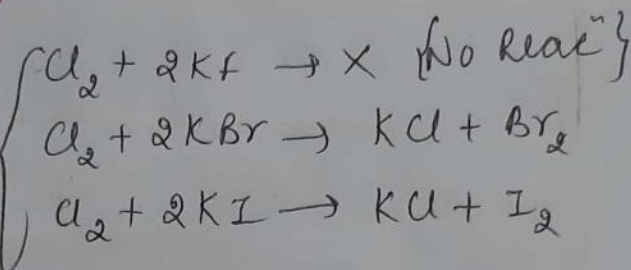 Cl₂ + 2Kf → × {No Reacⁿ}
Cl₂ + 2KBr → KCl + Br₂
Cl₂ + 2KI → KCl + I₂